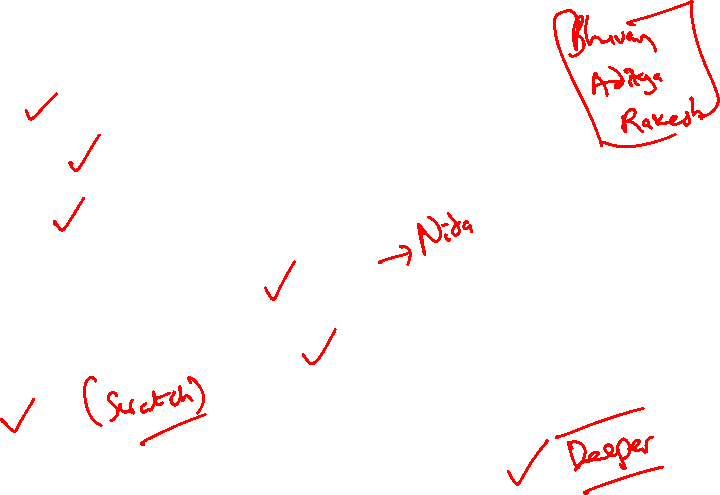 Bhuvan
Aditya
Rakesh
→ Nida
(Scratch)
Deeper